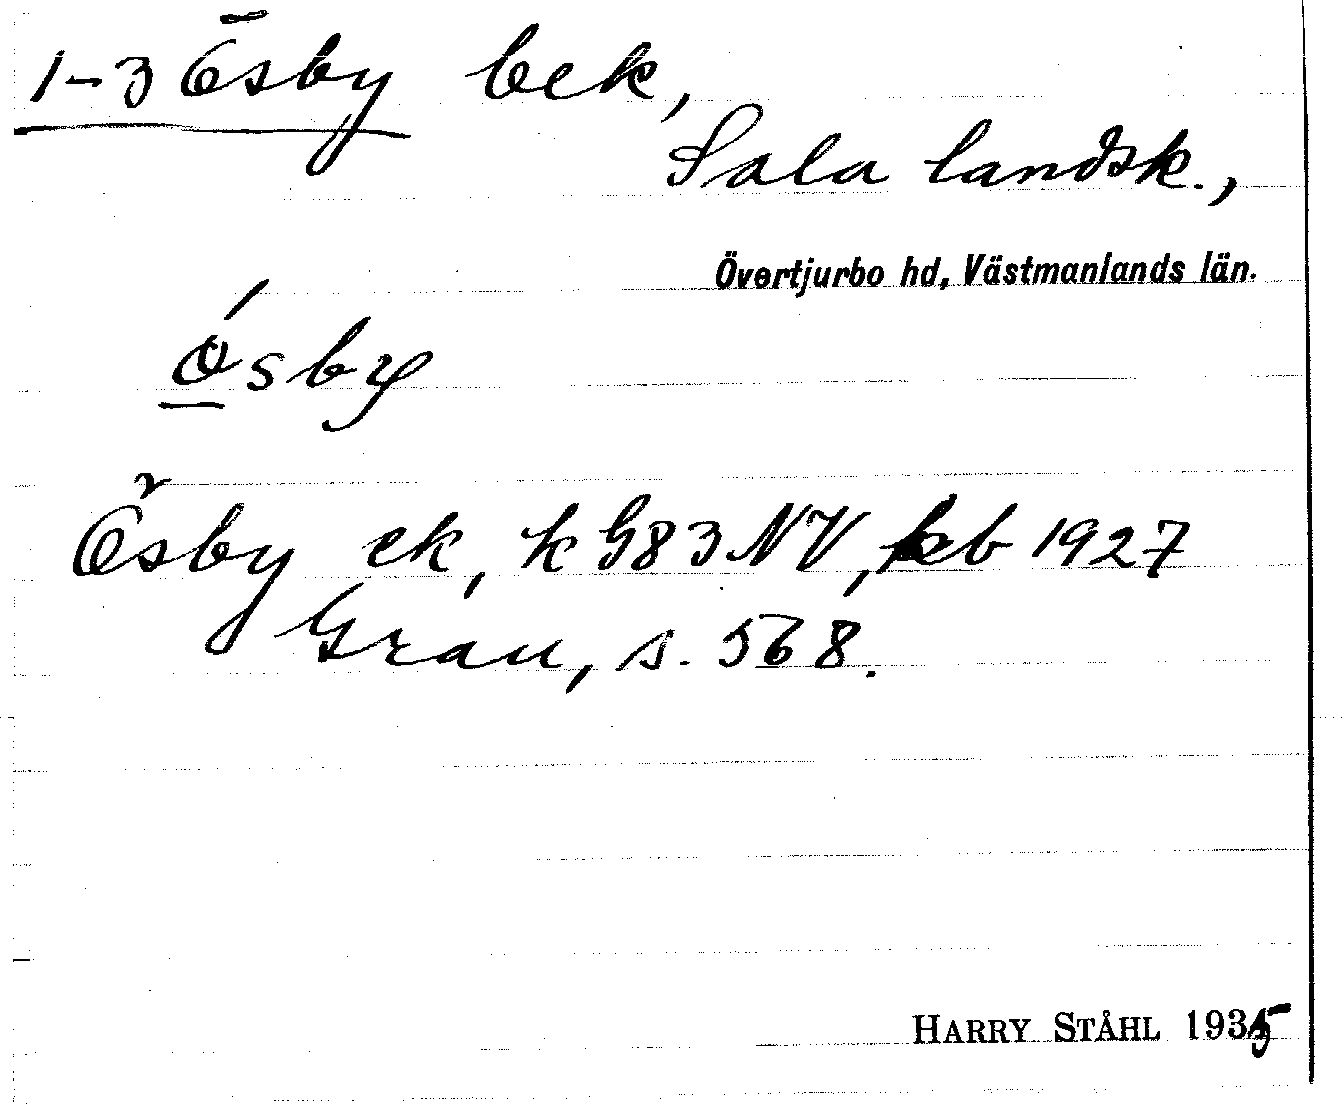 1-3 Ösby bek,
Sala landsk.,
Övertjurbo hd, Västmanlands län.
ósby
Ösby ek, k G83NV, jeb 1927
Grau, s. 568.
HARRY STÅHL 1935